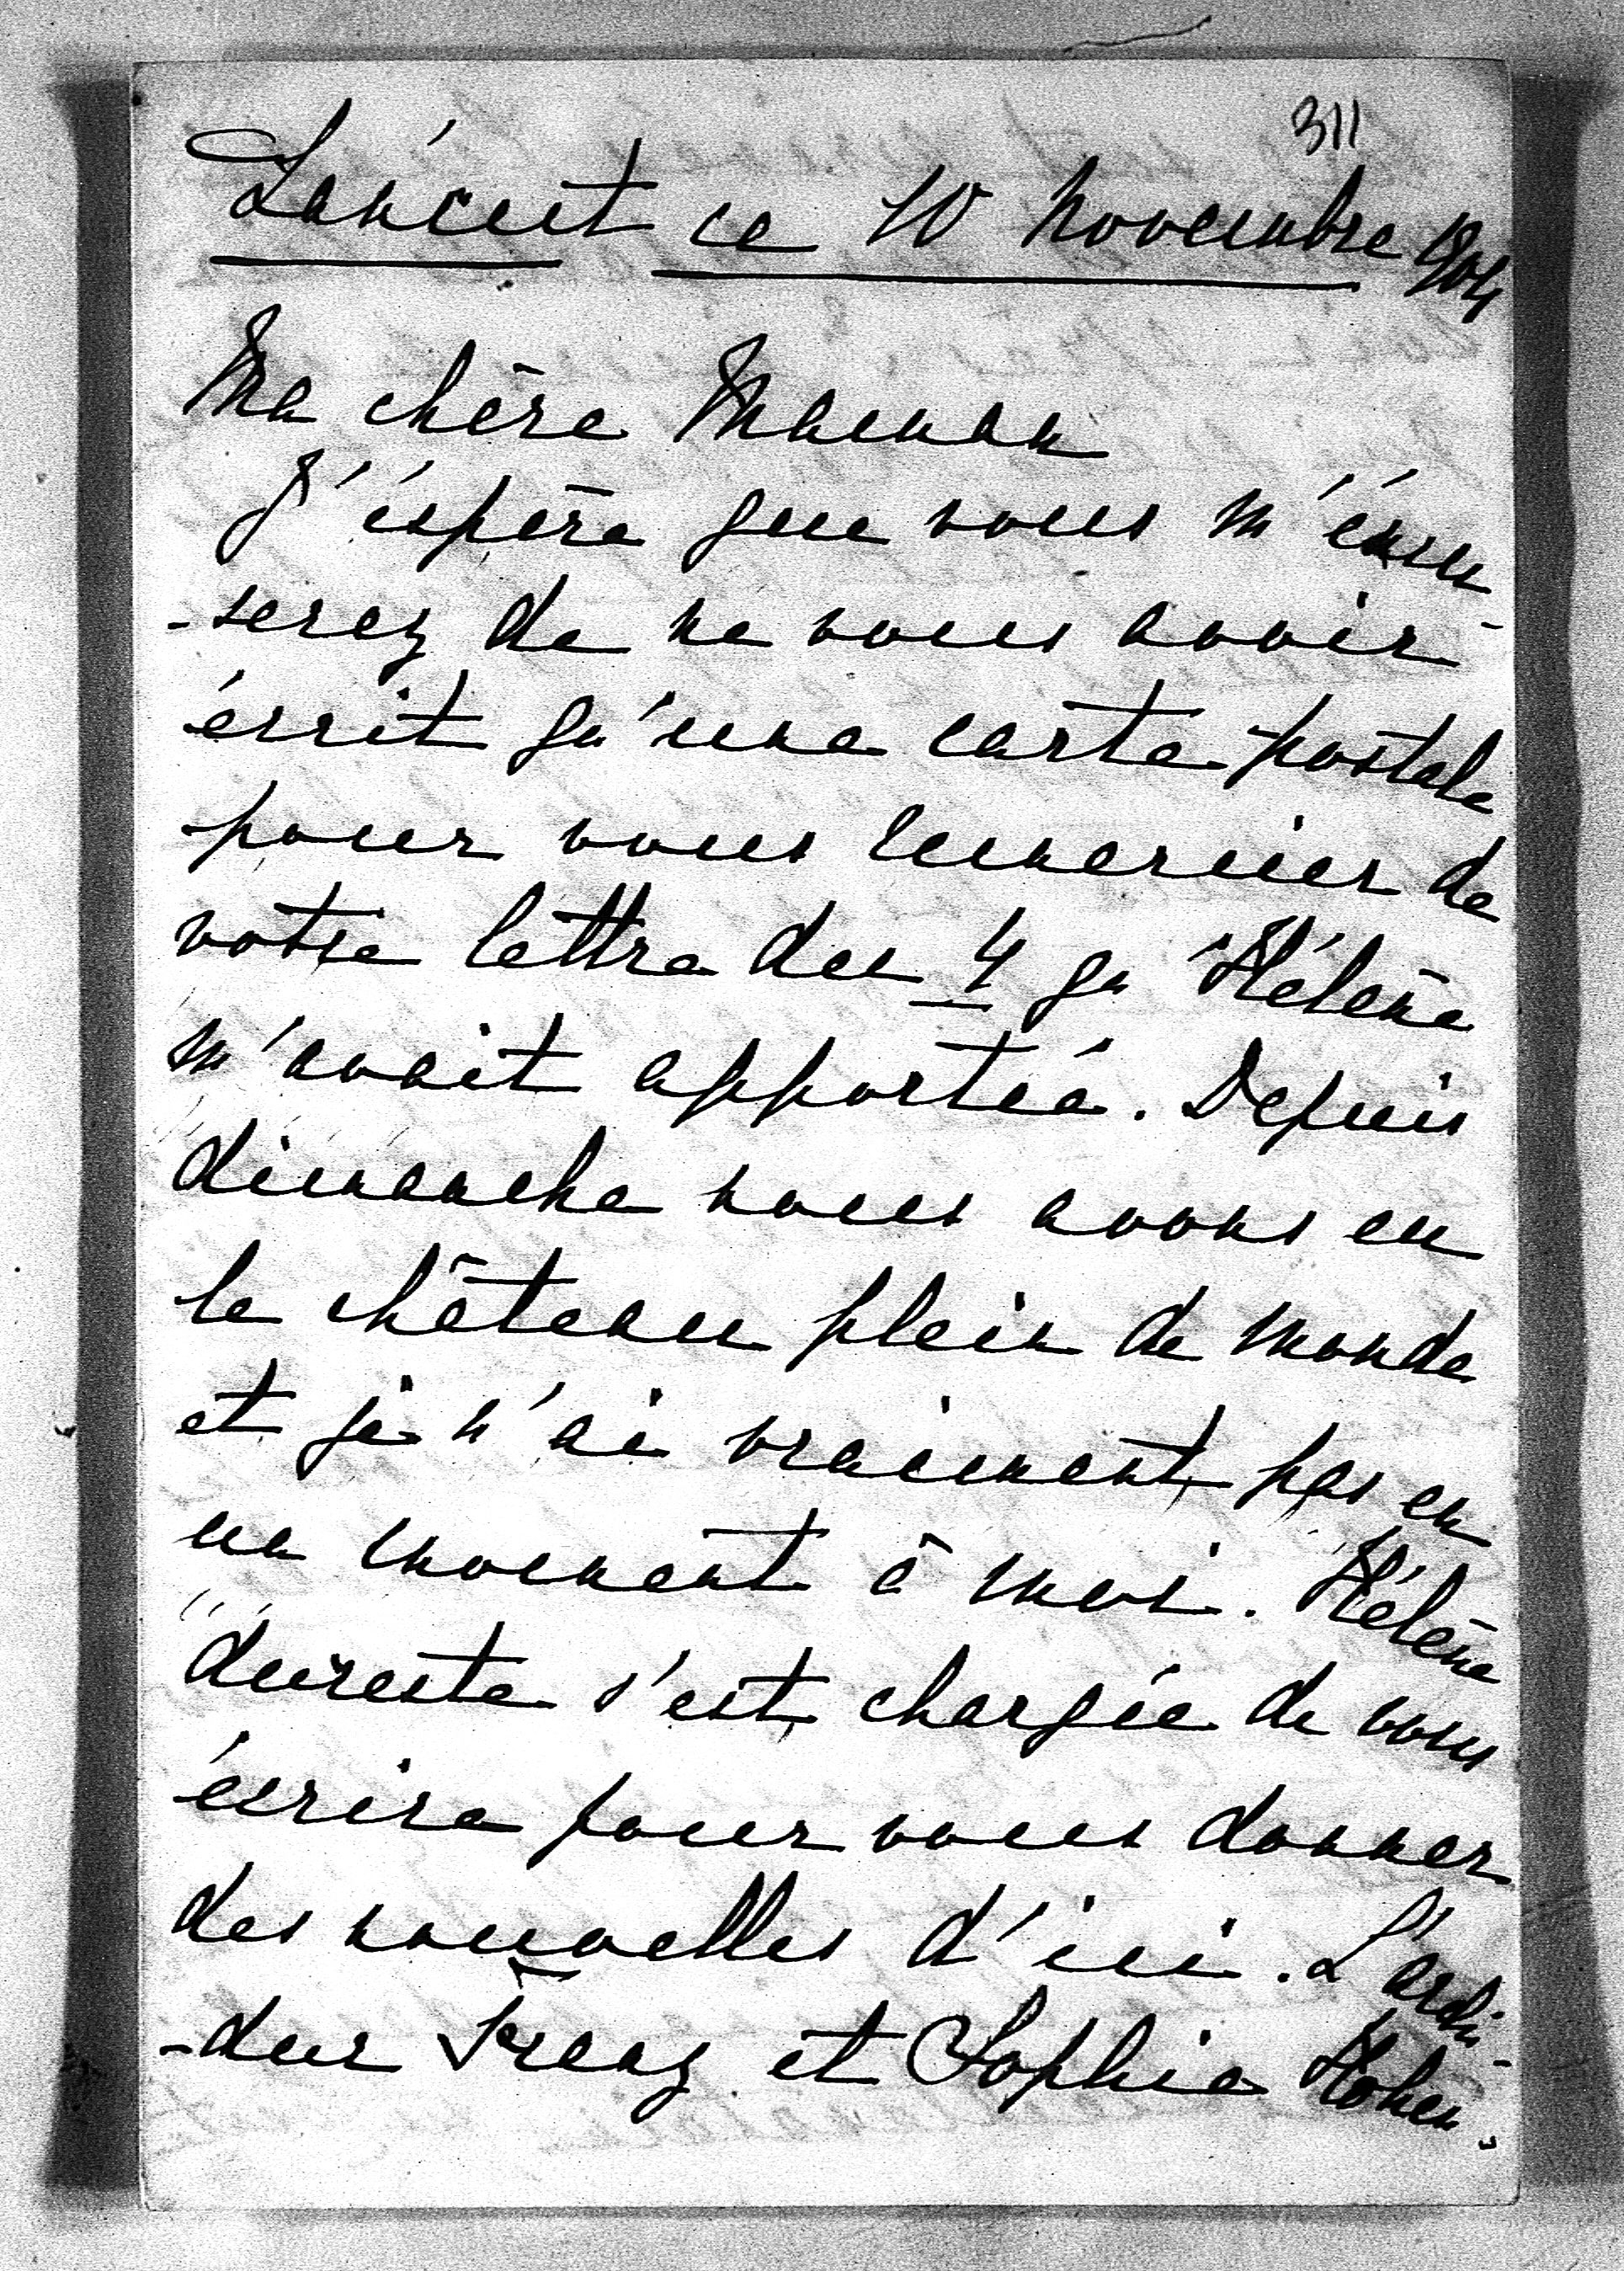 311
Lancut ce 10 Novembre 1904
Ma chère Maman
J'éspère que vous m'éxcu-
-serez de ne vous avoir
écrit qu'une carte postale
pour vous remercier de
votre lettre du 4 qu'Hélène
m'avait apportée. Depuis
dimanche nous avons eu
le château plein de monde
et je n'ai vraiment pas eu
un moment à moi. Hélène
dureste s'est chargée de vous
écrire pour vous donner
des nouvelles d'ici. L'archi-
-duc Franz et Sophie Hohen-